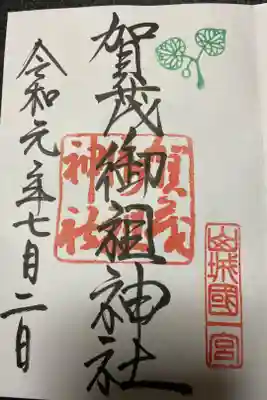 山城國一宮
賀茂御祖神社
賀茂御祖神社
令和元年七月二日